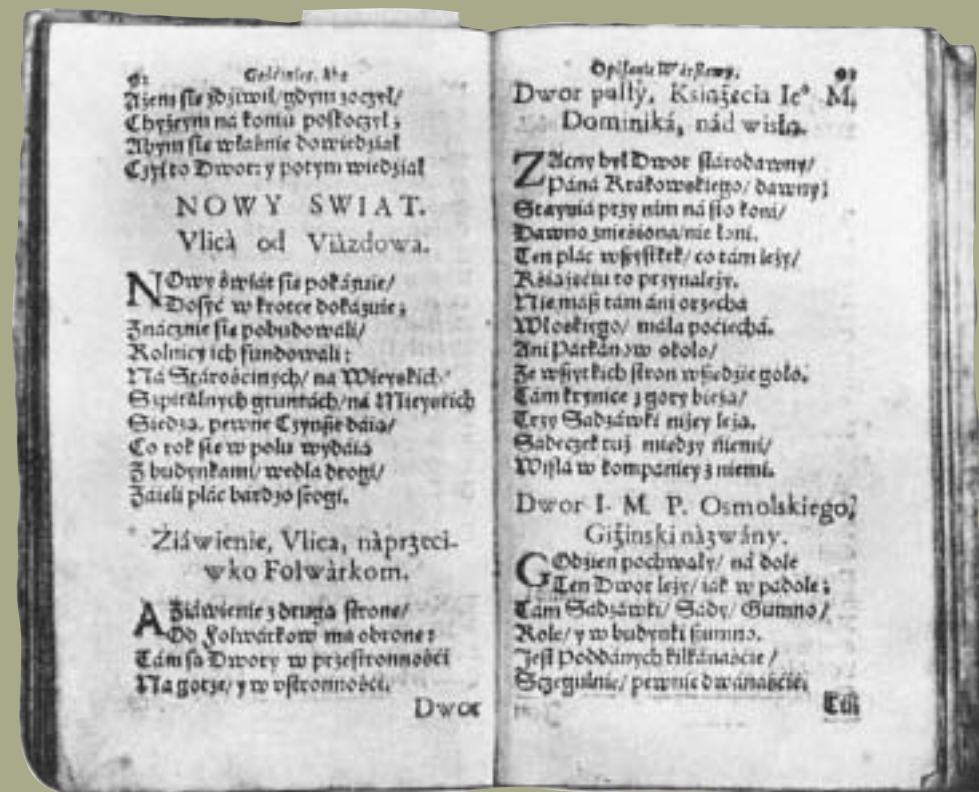 Gościniec, Abo
Ażem się zdziwił/ gdym zoczył/
Chyżeym na koniu poskoczył;
Abym się właśnie dowiedział
Czyj to Dwor: y potym wiedział
NOWY SWIAT.
Vlicà od Viàzdowa.
NOwy świát się pokázuie/
Dosyć w krotce dokázuie;
Znácznie się pobudowali/
Rolnicy ich fundowali:
Ná Stárościnych/ na Wieyskich
Szpitalnych gruntách/ná Mieyskich
Siedzą, pewne Czynsze dáią/
Co rok się w polu wydáią
Z budynkámi/ wedla drogi/
Záięli plác bárdzo srogi.
Żiáwienie, Vlica, nàprzeci-
wko Folwàrkom.
A Żiáwienie z druga stronę/
Od Folwárkow ma obronę:
Tám są Dwory w przestronności
Ná gorze/ y w vstronności.
Dwor
Opisanie Wárszáwy.
Dwor pusty, Książecia Ie° M,
Dominiká, nád wisłą.
ZAcny był Dwor stárodawny/
Páná Krákowskiego/ dawny;
Stáynia przy nim ná sto koni/
Dawno zniesiona/nie
Ten plác wszystek/ co tám leży/
Książęciu to przynależy.
Nie mász tám áni orzechá
Włoskiego/ máła pociechá.
Ani Párkánow około/
Ze wszytkich stron wszędzie goło.
Tám krynice z gory bieżą/
Trzy Sadzáwki niżey leżą.
Sádeczek tuż miedzy niemi/
Wisłá w kompániey z niemi.
Dwor I. M. P. Osmolskiego,
Giżinski názwány.
GOdzien pochwały/ ná dole
Ten Dwor leży/ iák w pádole;
Tám Sadzáwki/ Sády/ Gumno/
Role/ y w budynki szumno.
Jest Poddánych kilkánaście/
Szczegulnie/ pewnie dwánaście,